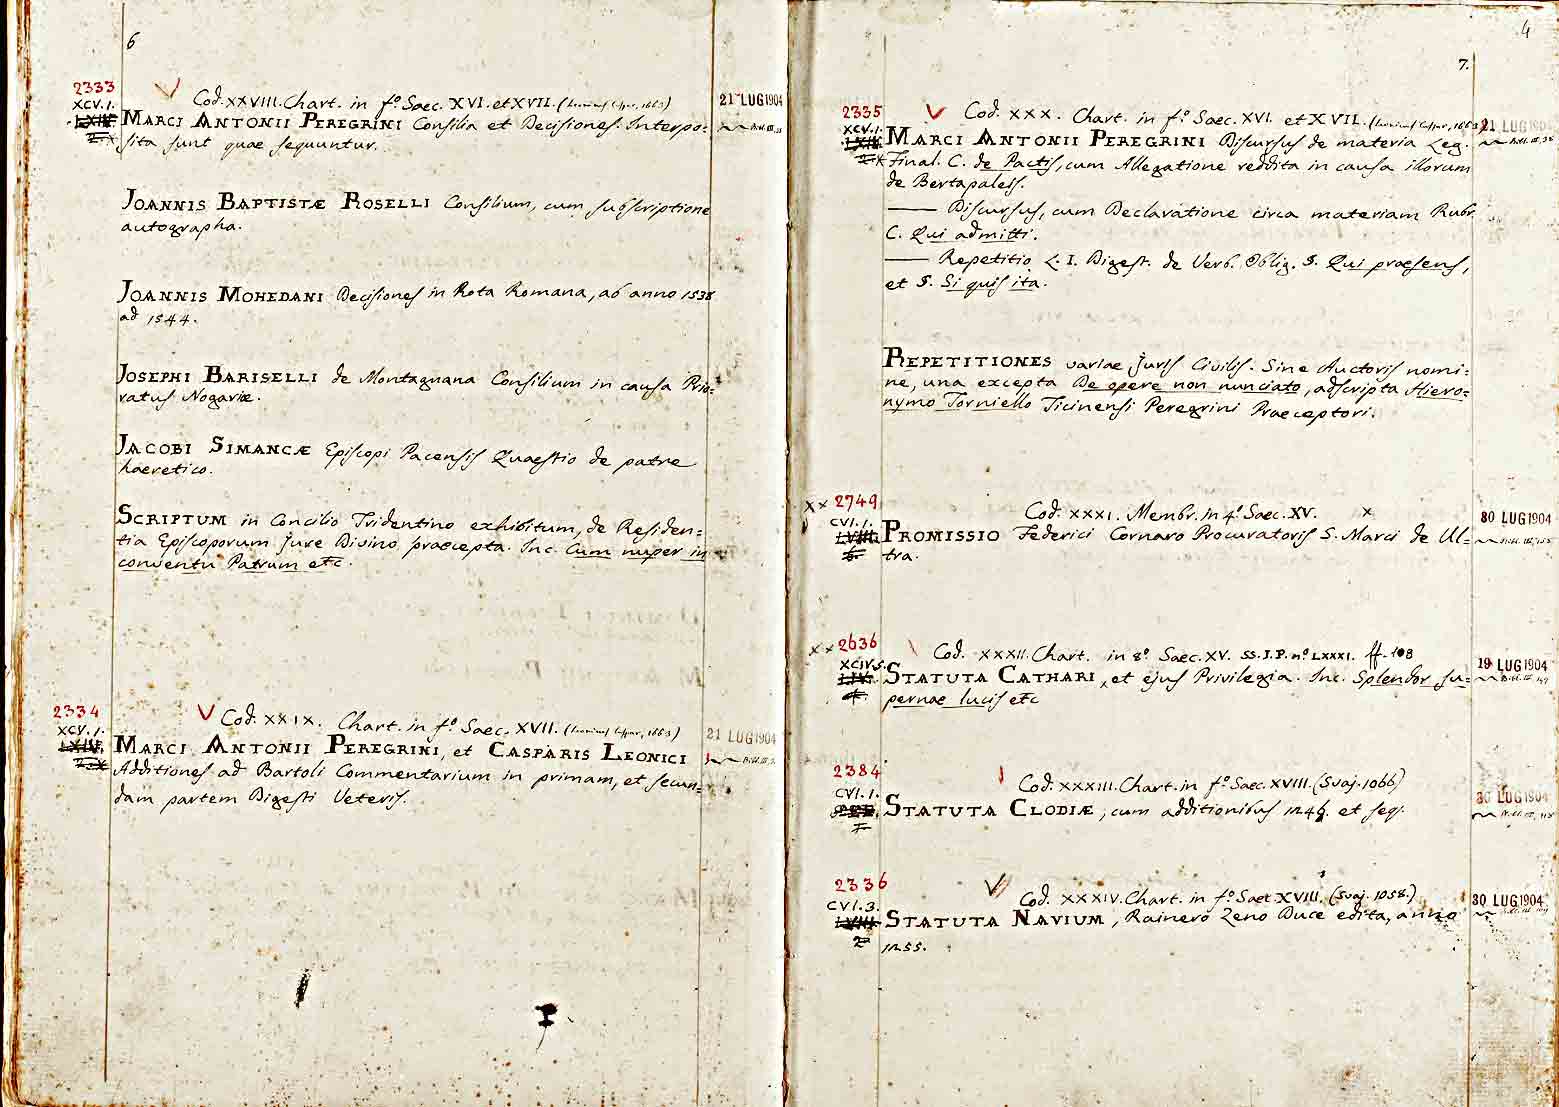 6
2333
XCV.1.
Cod. XXVIII. Chart. in fº. Saec. XVI. et XVII.
21 LUG 1904
MARCI ANTONII PEREGRINI Consilia et Decisiones. Interpo=
sita sunt quae sequuntur.
JOANNIS BAPTISTÆ ROSELLI Consilium, cum subscriptione
autographa.
JOANNIS MOHEDANI Decisiones in Rota Romana, ab anno 1538
ad 1544.
JOSEPHI BARISELLI de Montagnana Consilium in causa Prio=
ratus Nogariæ.
JACOBI SIMANCÆ Episcopi Pacensis Quaestio de patre
haeretico.
SCRIPTUM in Concilio Tridentino exhibitum, de Residen=
tia Episcoporum jure Divino praecepta. Inc. Cum nuper in
conventu Patrum etc.
2334
XCV.1.
Cod. XXIX. Chart. in fº. Saec. XVII.
21 LUG 1904
MARCI ANTONII PEREGRINI, et CASPARIS LEONICI
Additiones ad Bartoli Commentarium in primam, et secun=
dam partem Digesti Veteris.
4
7.
2335
XCV.1.
Cod. XXX. Chart. in fº. Saec. XVI. et XVII.
21 LUG 1904
MARCI ANTONII PEREGRINI Discursus de materia Leg.
Final. C. de Pactis, cum Allegatione reddita in causa illorum
de Bertapaleis.
—— Discursus, cum Declaratione circa materiam Rubr.
C. Qui admitti.
—— Repetitio L. I. Digest. de Verb. Oblig. §. Qui praesens,
et §. Si quis ita.
REPETITIONES variae juris Civilis. Sine Auctoris nomi=
ne, una excepta De opere non nunciato, adscripta Hiero=
nymo Torniello Ticinensi Peregrini Praeceptori.
x x 2749
CVI.1.
Cod. XXXI. Membr. in 4º Saec. XV. x
30 LUG 1904
PROMISSIO Federici Cornaro Procuratoris S. Marci de Ul=
tra.
x x 2636
XCIV.5.
Cod. XXXII. Chart. in 8º Saec. XV. SS. I. P. nº LXXXI. ff. 108
19 LUG 1904
STATUTA CATHARI, et ejus Privilegia. Inc. Splendor su=
pernae lucis etc
2384
CVI.1.
Cod. XXXIII. Chart. in fº. Saec. XVIII. (Svaj. 1066)
30 LUG 1904
STATUTA CLODIÆ, cum additionibus 1246. et seq.
2336
CVI.3.
Cod. XXXIV. Chart. in fº. Saec. XVIII. (Svaj. 1058.)
30 LUG 1904
STATUTA NAVIUM, Rainero Zeno Duce edita, anno
1255.